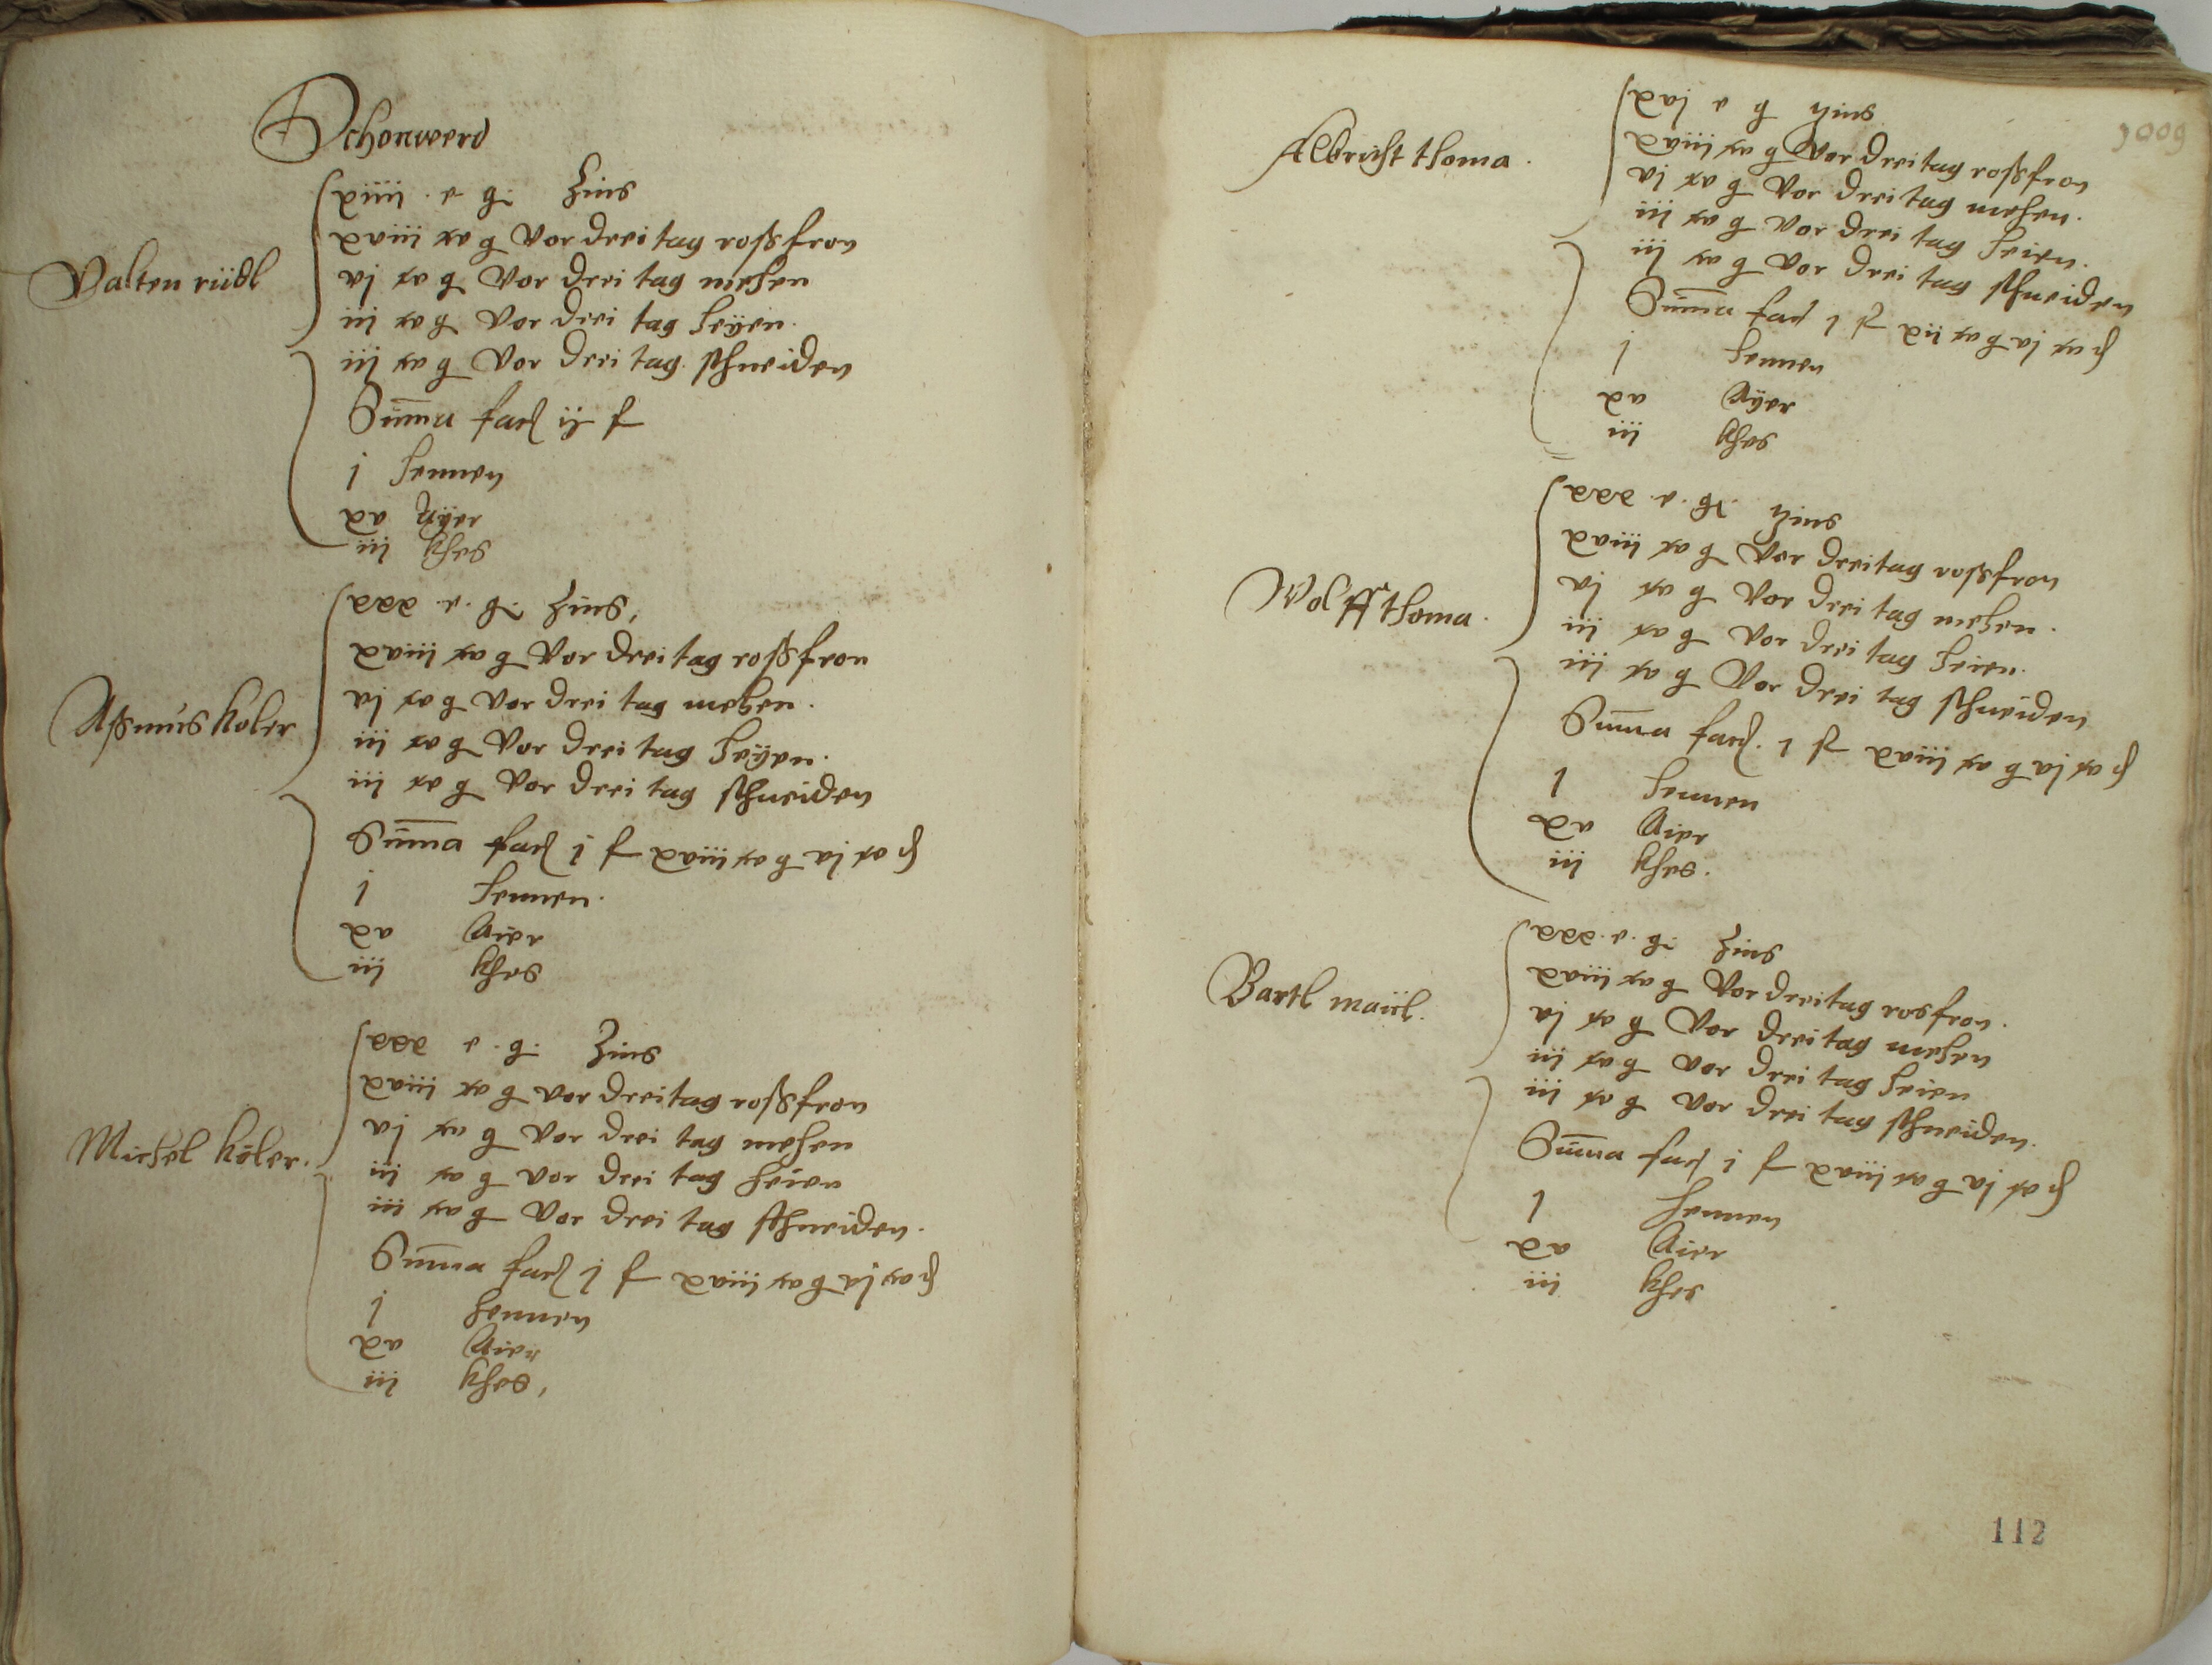 Schonwerd
Valten rüdl
xiiii . e . g . Zins
xviii xr g Vor drei tag roßfron
vj xr g Vor drei tag mehen
iii xr g Vor drei tag heÿen.
iii xr g Vor drei tag schneiden
Summa facj ij f
j hennen
xv aÿer
iii khes
Aßmus koler
xxx . e . g . Zins,
xviii xr g Vor drei tag roßfron
vj xr g Vor drei tag mehen.
iii xr g Vor drei tag heÿen.
iii xr g Vor drei tag schneiden
Summa facj j f xviii xr g vj xr h
j hennen.
xv Aier
iii khes
Michel köler.
xxx e . g . Zins
xviii xr g vor drei tag roßfron
vj xr g Vor drei tag mehen
iii xr g vor drei tag heien
iii xr g Vor drei tag schneiden.
Summa facj j f xviii xr g vj xr h
j hennen
xv Aier
iii khes,
1009
Albricht thoma.
xvj e g Zins
xviii xr g Vor drei tag roßfron
vj xr g Vor drei tag mehen.
iii xr g Vor drei tag heien.
iii xr g Vor drei tag schneiden
Summa facj j f xii xr g vj xr h
j hennen
xv Aÿer
iii khes
Wolff thoma.
xxx . e . g . Zins
xviii xr g Vor drei tag roßfron
vj xr g Vor drei tag mehen.
iii xr g Vor drei tag heien.
iii xr g Vor drei tag schneiden
Summa facj. j f xviii xr g vj xr h
j hennen
xv Aier
iii khes.
Bartl maiül.
xxx . e . g . Zins
xviii xr g Vor drei tag rosfron.
vj xr g Vor drei tag mehen
iii xr g vor drei tag heien
iii xr g Vor drei tag schneiden.
Summa facj j f xviii xr g vj xr h
j hennen
xv Aier
iii khes
112